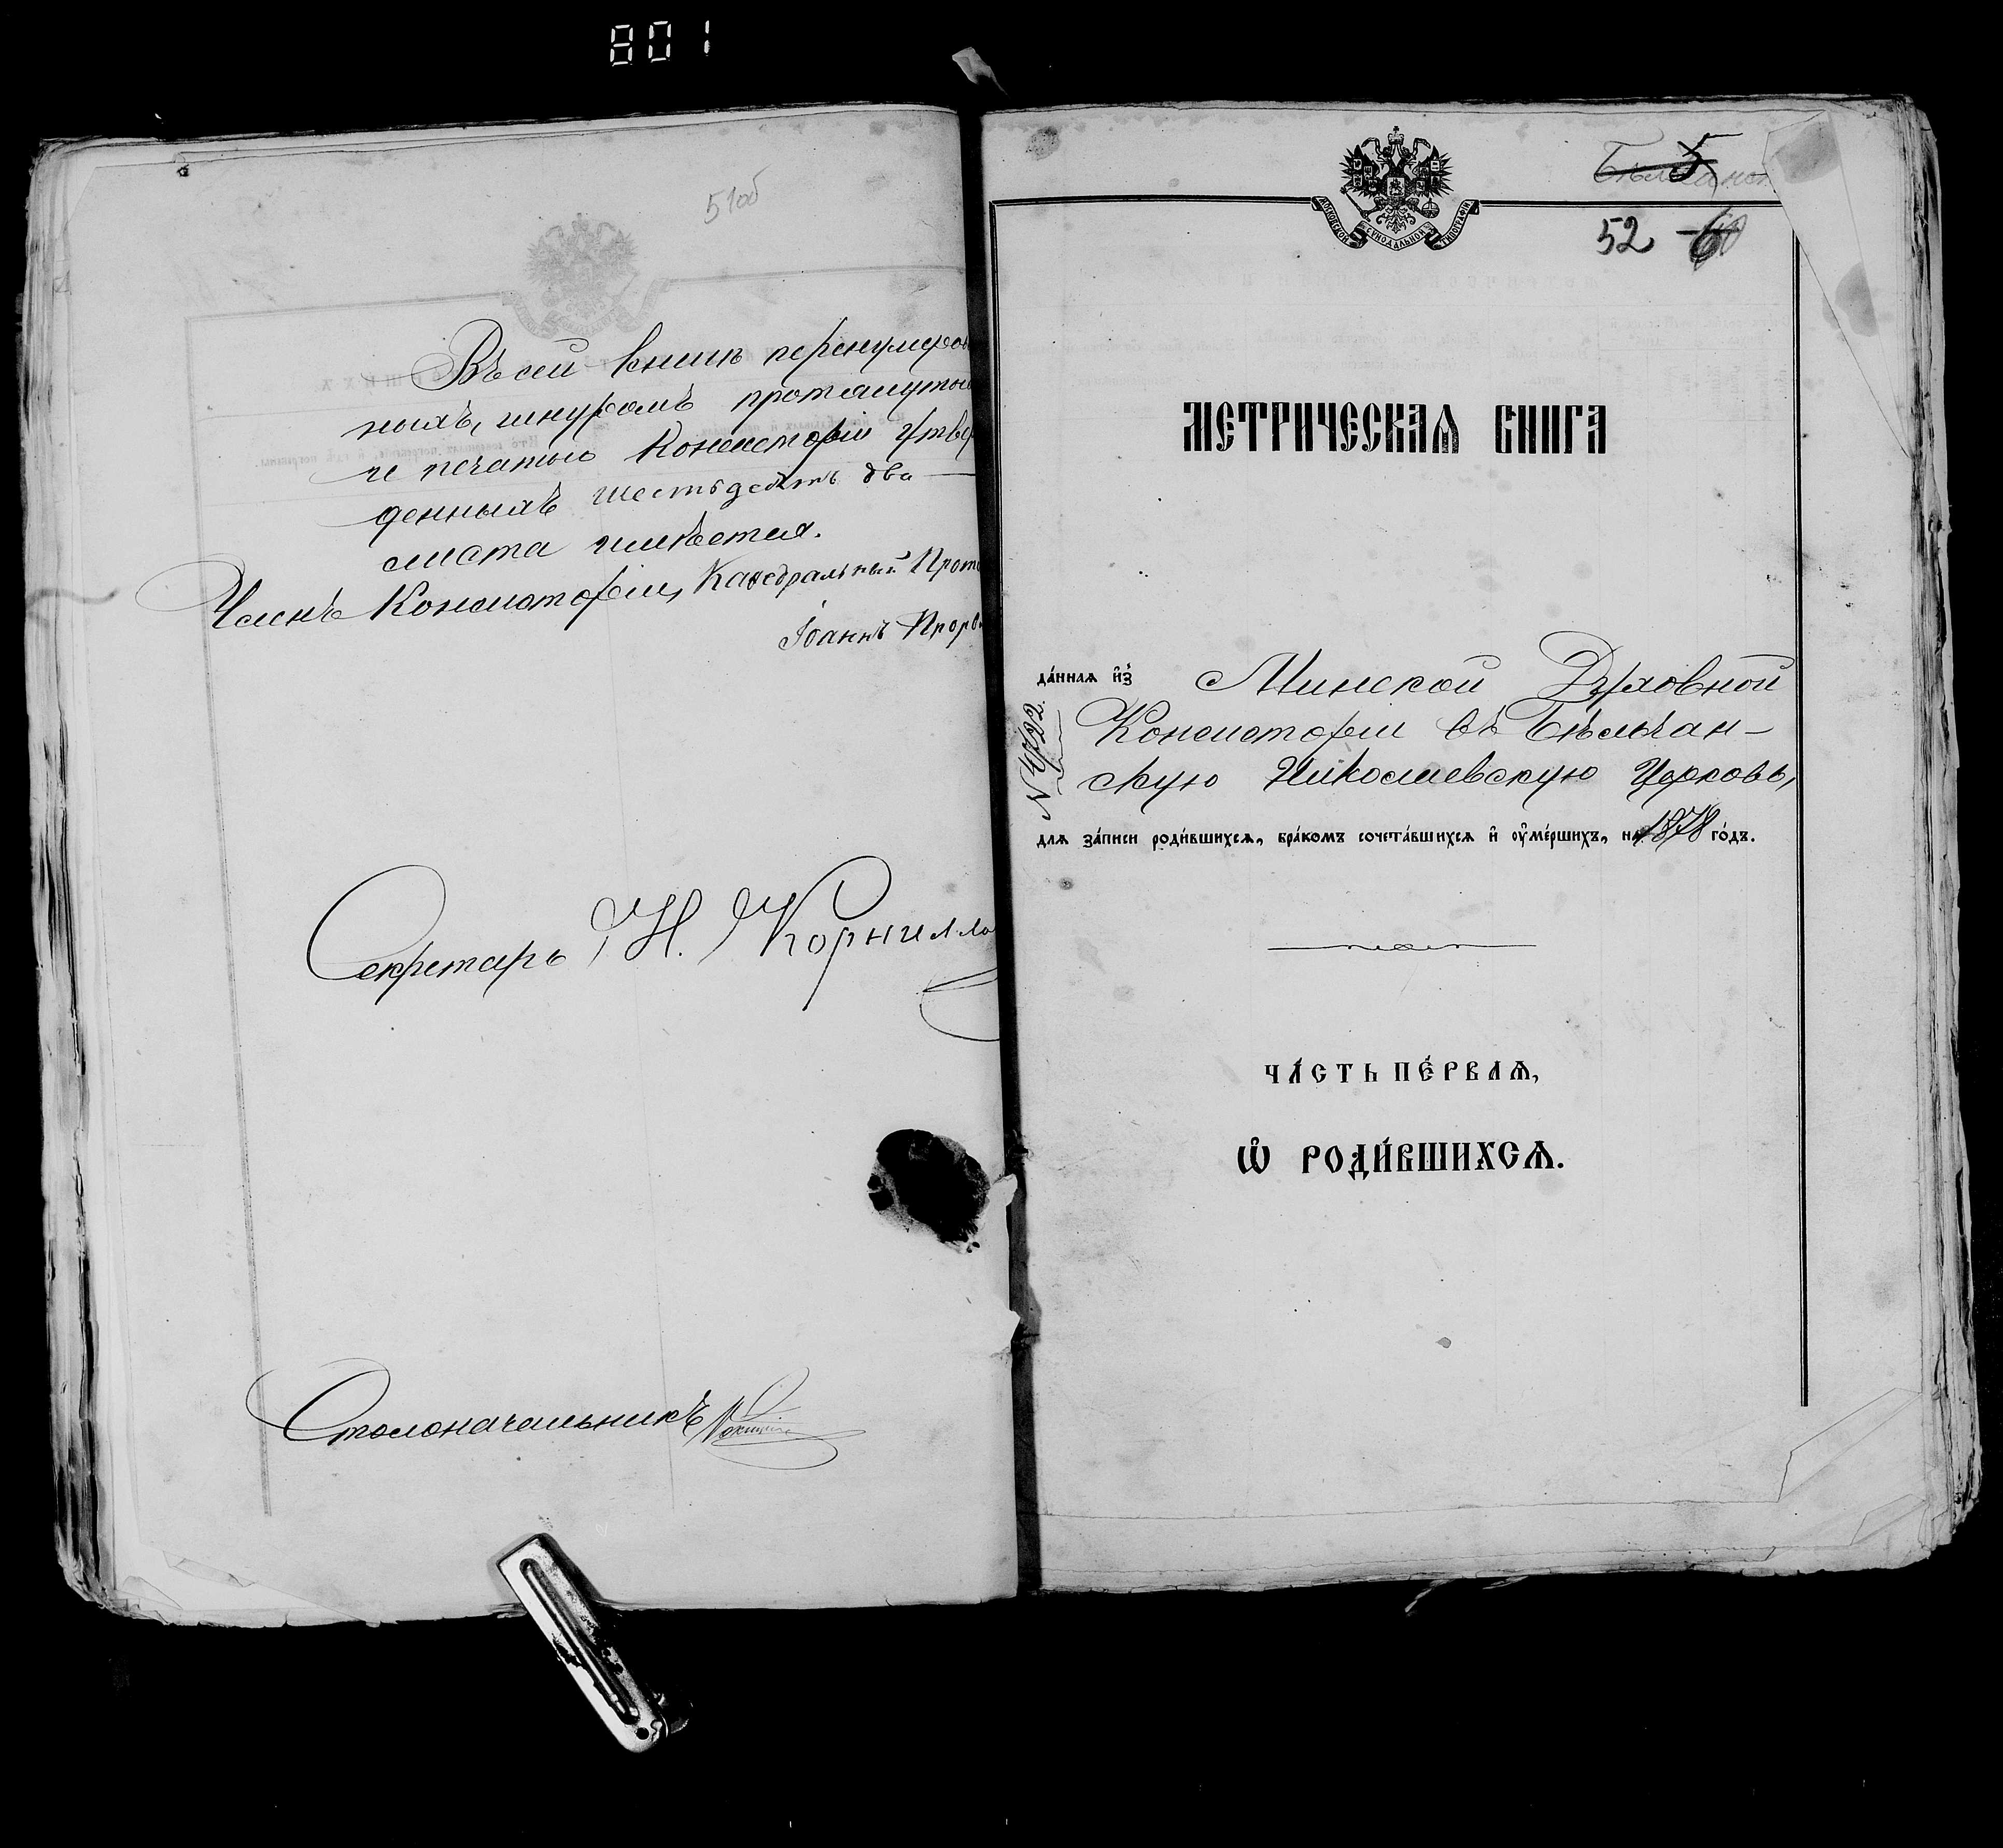 801
51об
Въ сей книгѣ перенумерован
ныхъ, шнуромъ протянутыхъ
и печатью Консисторіи утвер
жденныхъ шестьдесятъ два
листа имѣется.
Членъ Консисторіи, Каѳедральный Прото
Іоаннъ
Секретарь Н. Корнилло
Столоначальникъ
МОСКОВСКОЙ СѴНОДАЛЬНОЙ ТИПОГРАФІИ
5
52
МЕТРИЧЕСКАѦ КНИГА
да́ннаѧ и҆з̾ Минской Духовной
Консисторіи въ Бѣльчан-
скую Николаевскую Церковь,
для за́писи роди́вшихсѧ, бра́комъ сочета́вшихсѧ и҆ ᲂу҆ме́ршихъ, на 1878 го́дъ.
ЧА́СТЬ ПЕ́РВАѦ,
Ѡ҆ РОДИ́ВШИХСѦ.